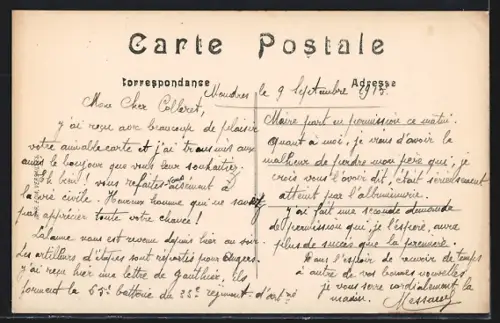 Carte Postale
Correspondance
Adresse
Moudres le 9 Septembre 1915
Mon Cher Colleret,
J'ai reçu avec beaucoup de plaisir
votre aimable carte et j'ai transmis aux
amis le bonjour que vous leur souhaitiez.
Eh bien! vous refaites-vous aisément à
la vie civile. Heureux homme qui ne savez
pas apprécier toute votre chance!
Lalanne nous est revenu depuis hier au soir.
Les artilleurs d'étapes sont répartis pour Angers.
J'ai reçu hier une lettre de Gauthier, ils
forment la 65e batterie du 33e régiment d'art
Maire part en permission ce matin.
Quant à moi, je viens d'avoir le
malheur de perdre mon père qui, je
crois vous l'avoir dit, était sérieusement
atteint par l'albuminurie.
J'ai fait une seconde demande
de permission qui, je l'espère, aura
plus de succès que la première.
Dans l'espoir de recevoir de temps
à autre de vos bonnes nouvelles
je vous serre cordialement la
main.